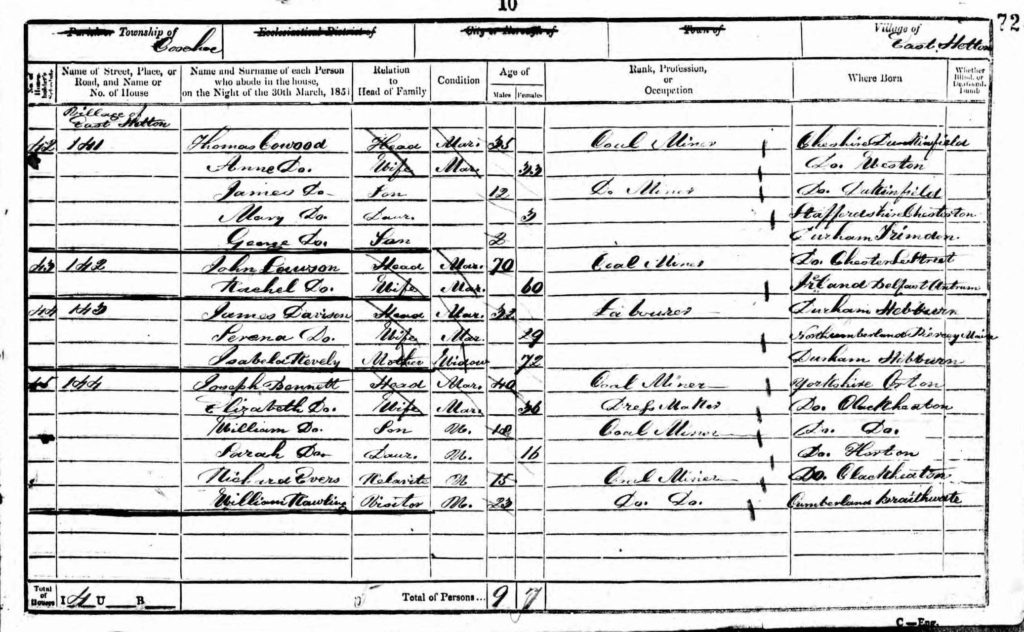 10
72
Parish or Township of Coxhoe Ecclesiastical District of City or Borough of Town of Village of East Hetton
Name of Street, Place, or Road, and Name or No. of House Name and Surname of each Person who abode in the house, on the Night of the 30th March, 1851 Relation to Head of Family Condition Age of Males Females Rank, Profession, or Occupation Where Born Whether Blind, or Deaf-and-Dumb
Village of East Hetton
42 141 Thomas Cowood Head Mar. 35 Coal Miner Cheshire Dunkinfield
Anne Do. Wife Mar. 33 Do. Weston
James Do. Son 12 Do Miner Do. Dukinfield
Mary Do. Daur. 3 Staffordshire Chesterton
George Do. Son 2 Durham Trimdon
43 142 John Cowson Head Mar. 70 Coal Miner Do. Chester le Street
Rachel Do. Wife Mar. 60 Ireland Belfast Antrim
44 143 James Davison Head Mar. 32 Labourer Durham Hebburn
Serena Do. Wife Mar. 29 Northumberland Main
Isabela Hevely Mother Widow 72 Durham Hebburn
45 144 Joseph Bennett Head Mar. 40 Coal Miner Yorkshire
Elizabeth Do. Wife Mar. 36 Dress Maker Do. Cleckheaton
William Do. Son U. 18 Coal Miner Do. Do.
Sarah Do. Daur. U. 16 Do. Horton
Richard Evers Relative U. 15 Coal Miner Do. Cleckheaton
William Rawling Visitor U. 23 Do. Do. Cumberland Braithwaite
Total of Houses I 4 U B Total of Persons... 9 7
C—Eng.